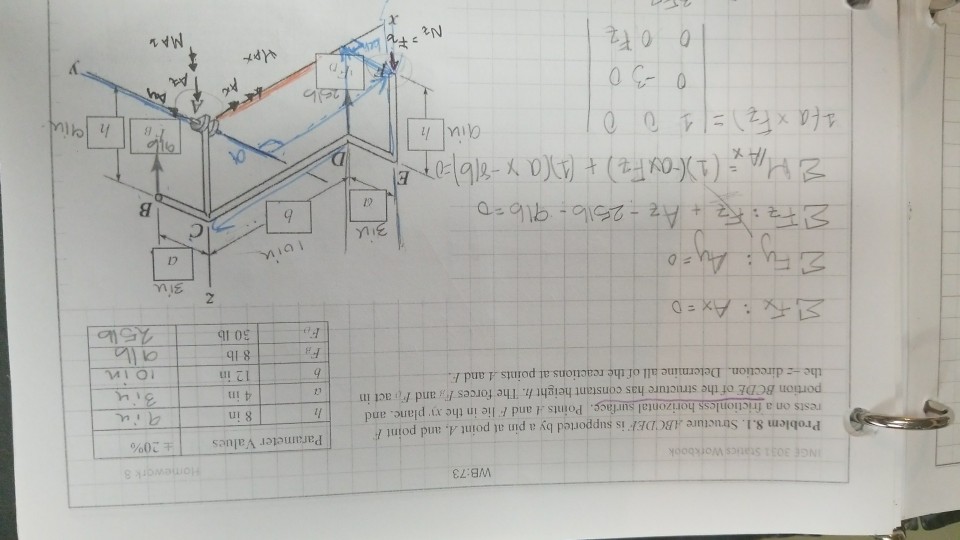 INGE 3031 Statics Workbook WB:73 Homework 8
Problem 8.1. Structure ABCDEF is supported by a pin at point A, and point F
rests on a frictionless horizontal surface. Points A and F lie in the xy plane, and
portion BCDE of the structure has constant height h. The forces F_B and F_D act in
the −z direction. Determine all of the reactions at points A and F.
Parameter Values ± 20%
h 8 in 9 in
a 4 in 3 in
b 12 in 10 in
F_B 8 lb 9 lb
F_D 30 lb 25 lb
ΣFx : Ax = 0
ΣFy : Ay = 0
ΣFz : Fz + Az - 25lb - 9lb = 0
z
3in
a
10in
b
3in
a
B
C
D
E
9in
h
9lb
F_B
25lb
F_D
9in
h
a
F
Ay
Az
Ax
MAx
MAz
y
x
Nz = Fz
1 0 0
0 -3 0
0 0 Fz